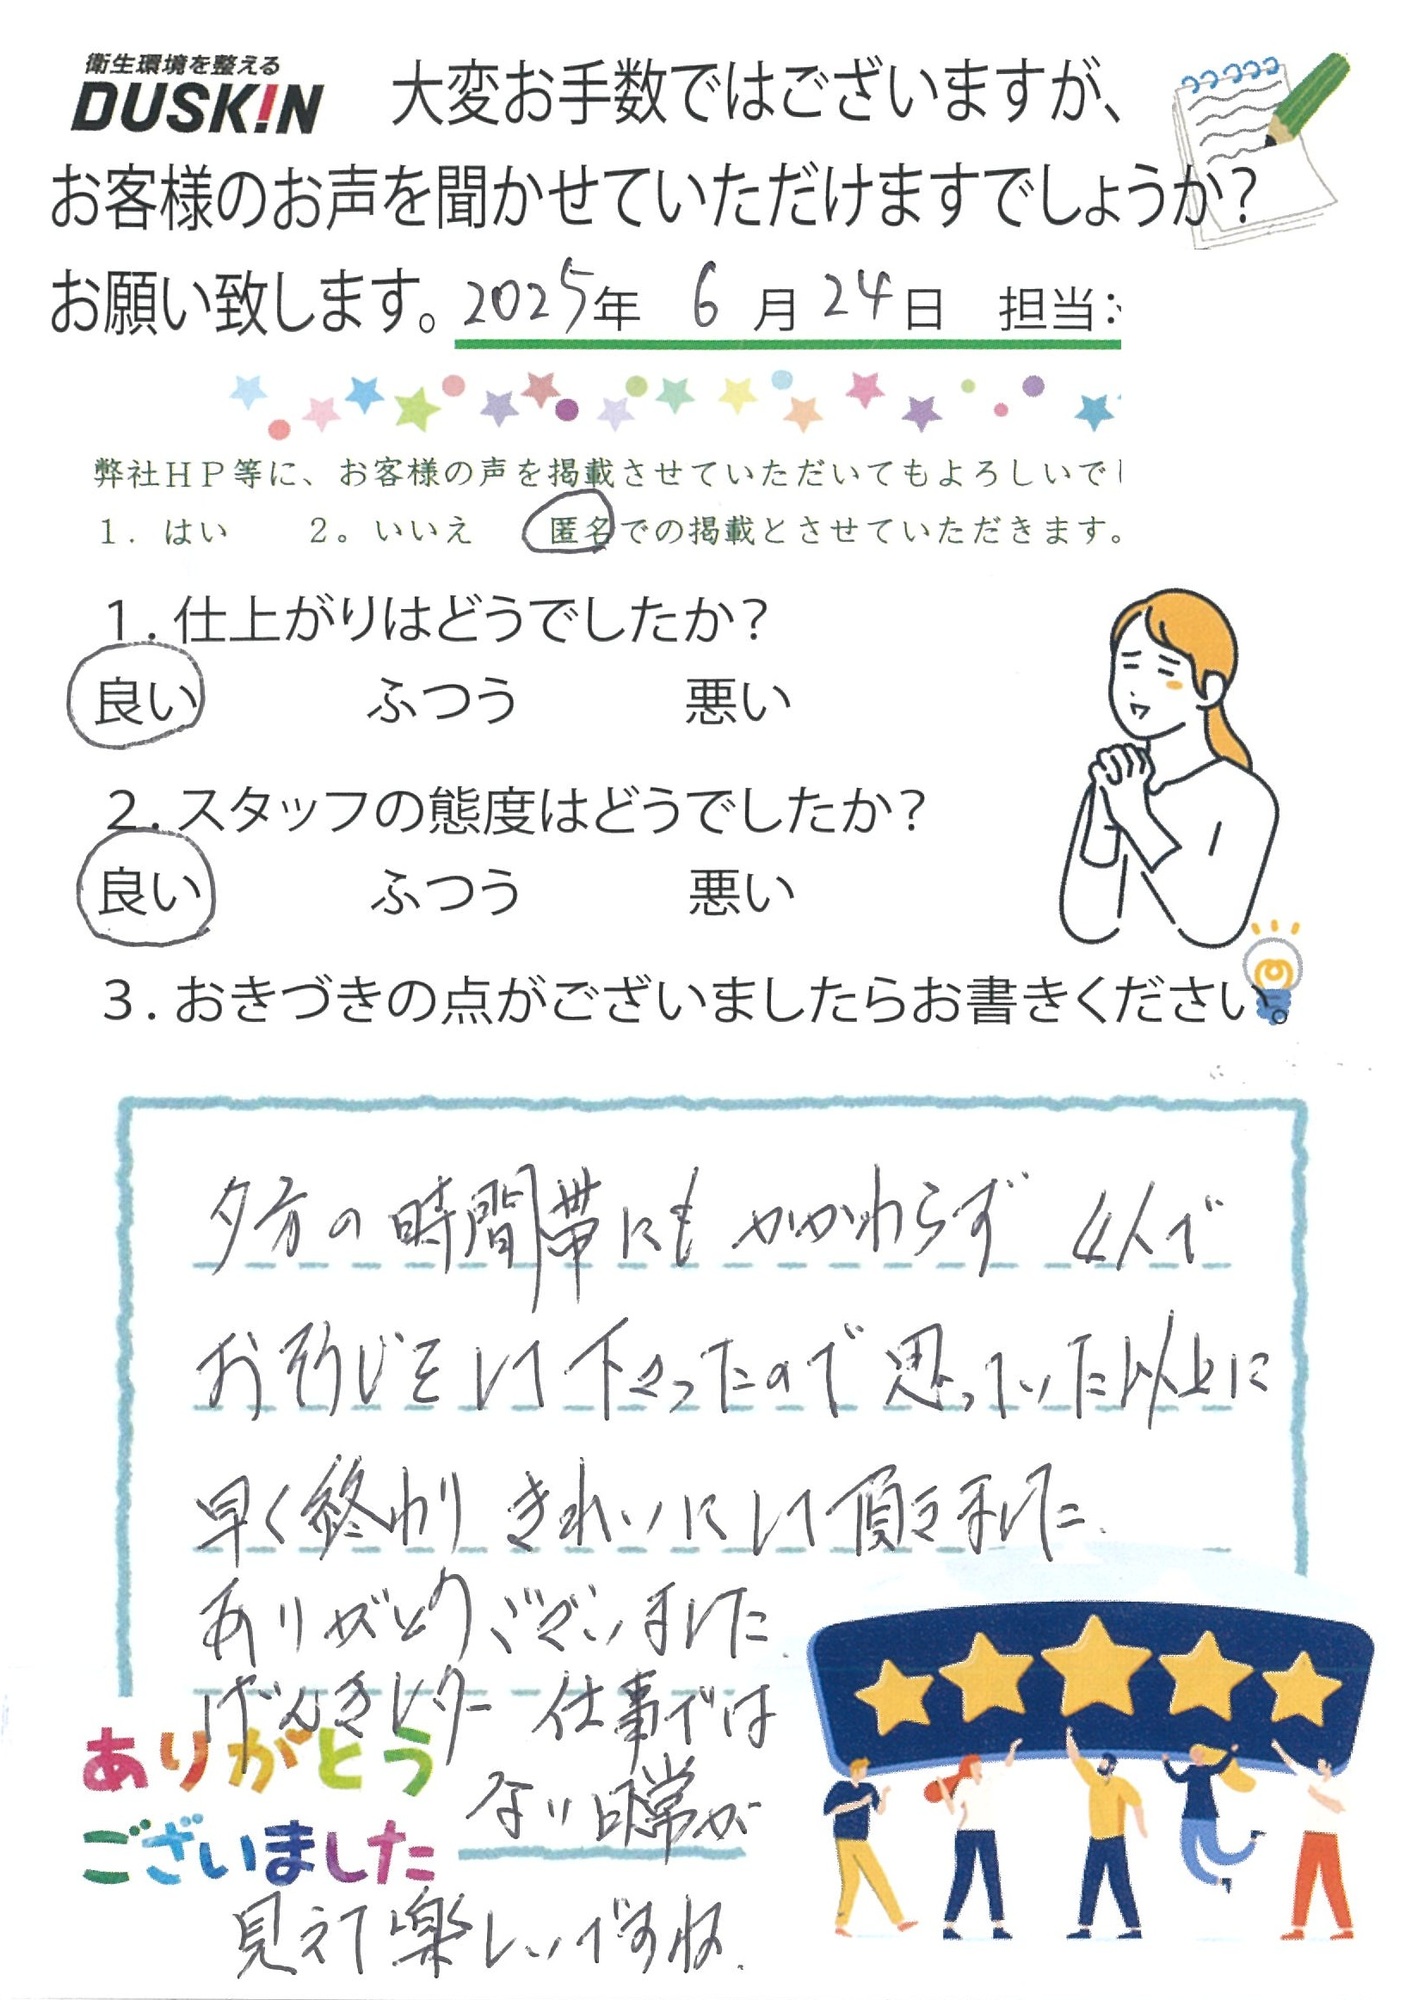 衛生環境を整える
DUSKIN 大変お手数ではございますが、
お客様のお声を聞かせていただけますでしょうか？
お願い致します。2025年 6月24日 担当：
弊社ＨＰ等に、お客様の声を掲載させていただいてもよろしいで
１．はい ２。いいえ 匿名での掲載とさせていただきます。
１．仕上がりはどうでしたか？
良い ふつう 悪い
２．スタッフの態度はどうでしたか？
良い ふつう 悪い
３．おきづきの点がございましたらお書きください。
夕方の時間帯にもかかわらず 4人で
おそうじをして下さったので思っていた以上に
早く終わり きれいにして頂きました.
ありがとうございました.
げんきレター 仕事では
ない日常が
見えて楽しいですね.
ありがとう
ございました